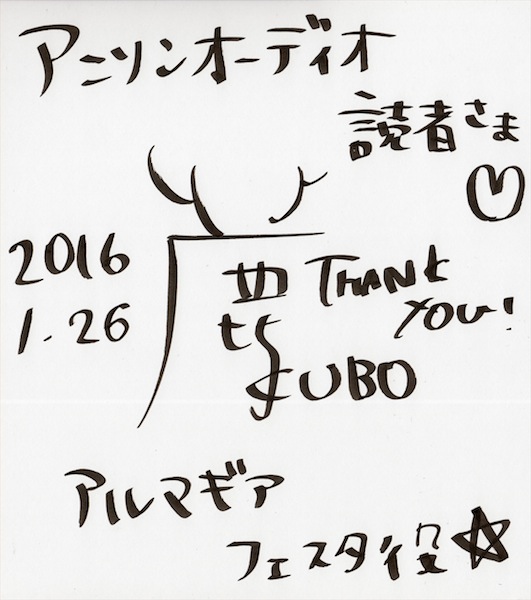 アニソンオーディオ
読者さま♡
2016
1.26
鹿
THANK
YOU!
KUBO
アルマギア
フェスタ役☆